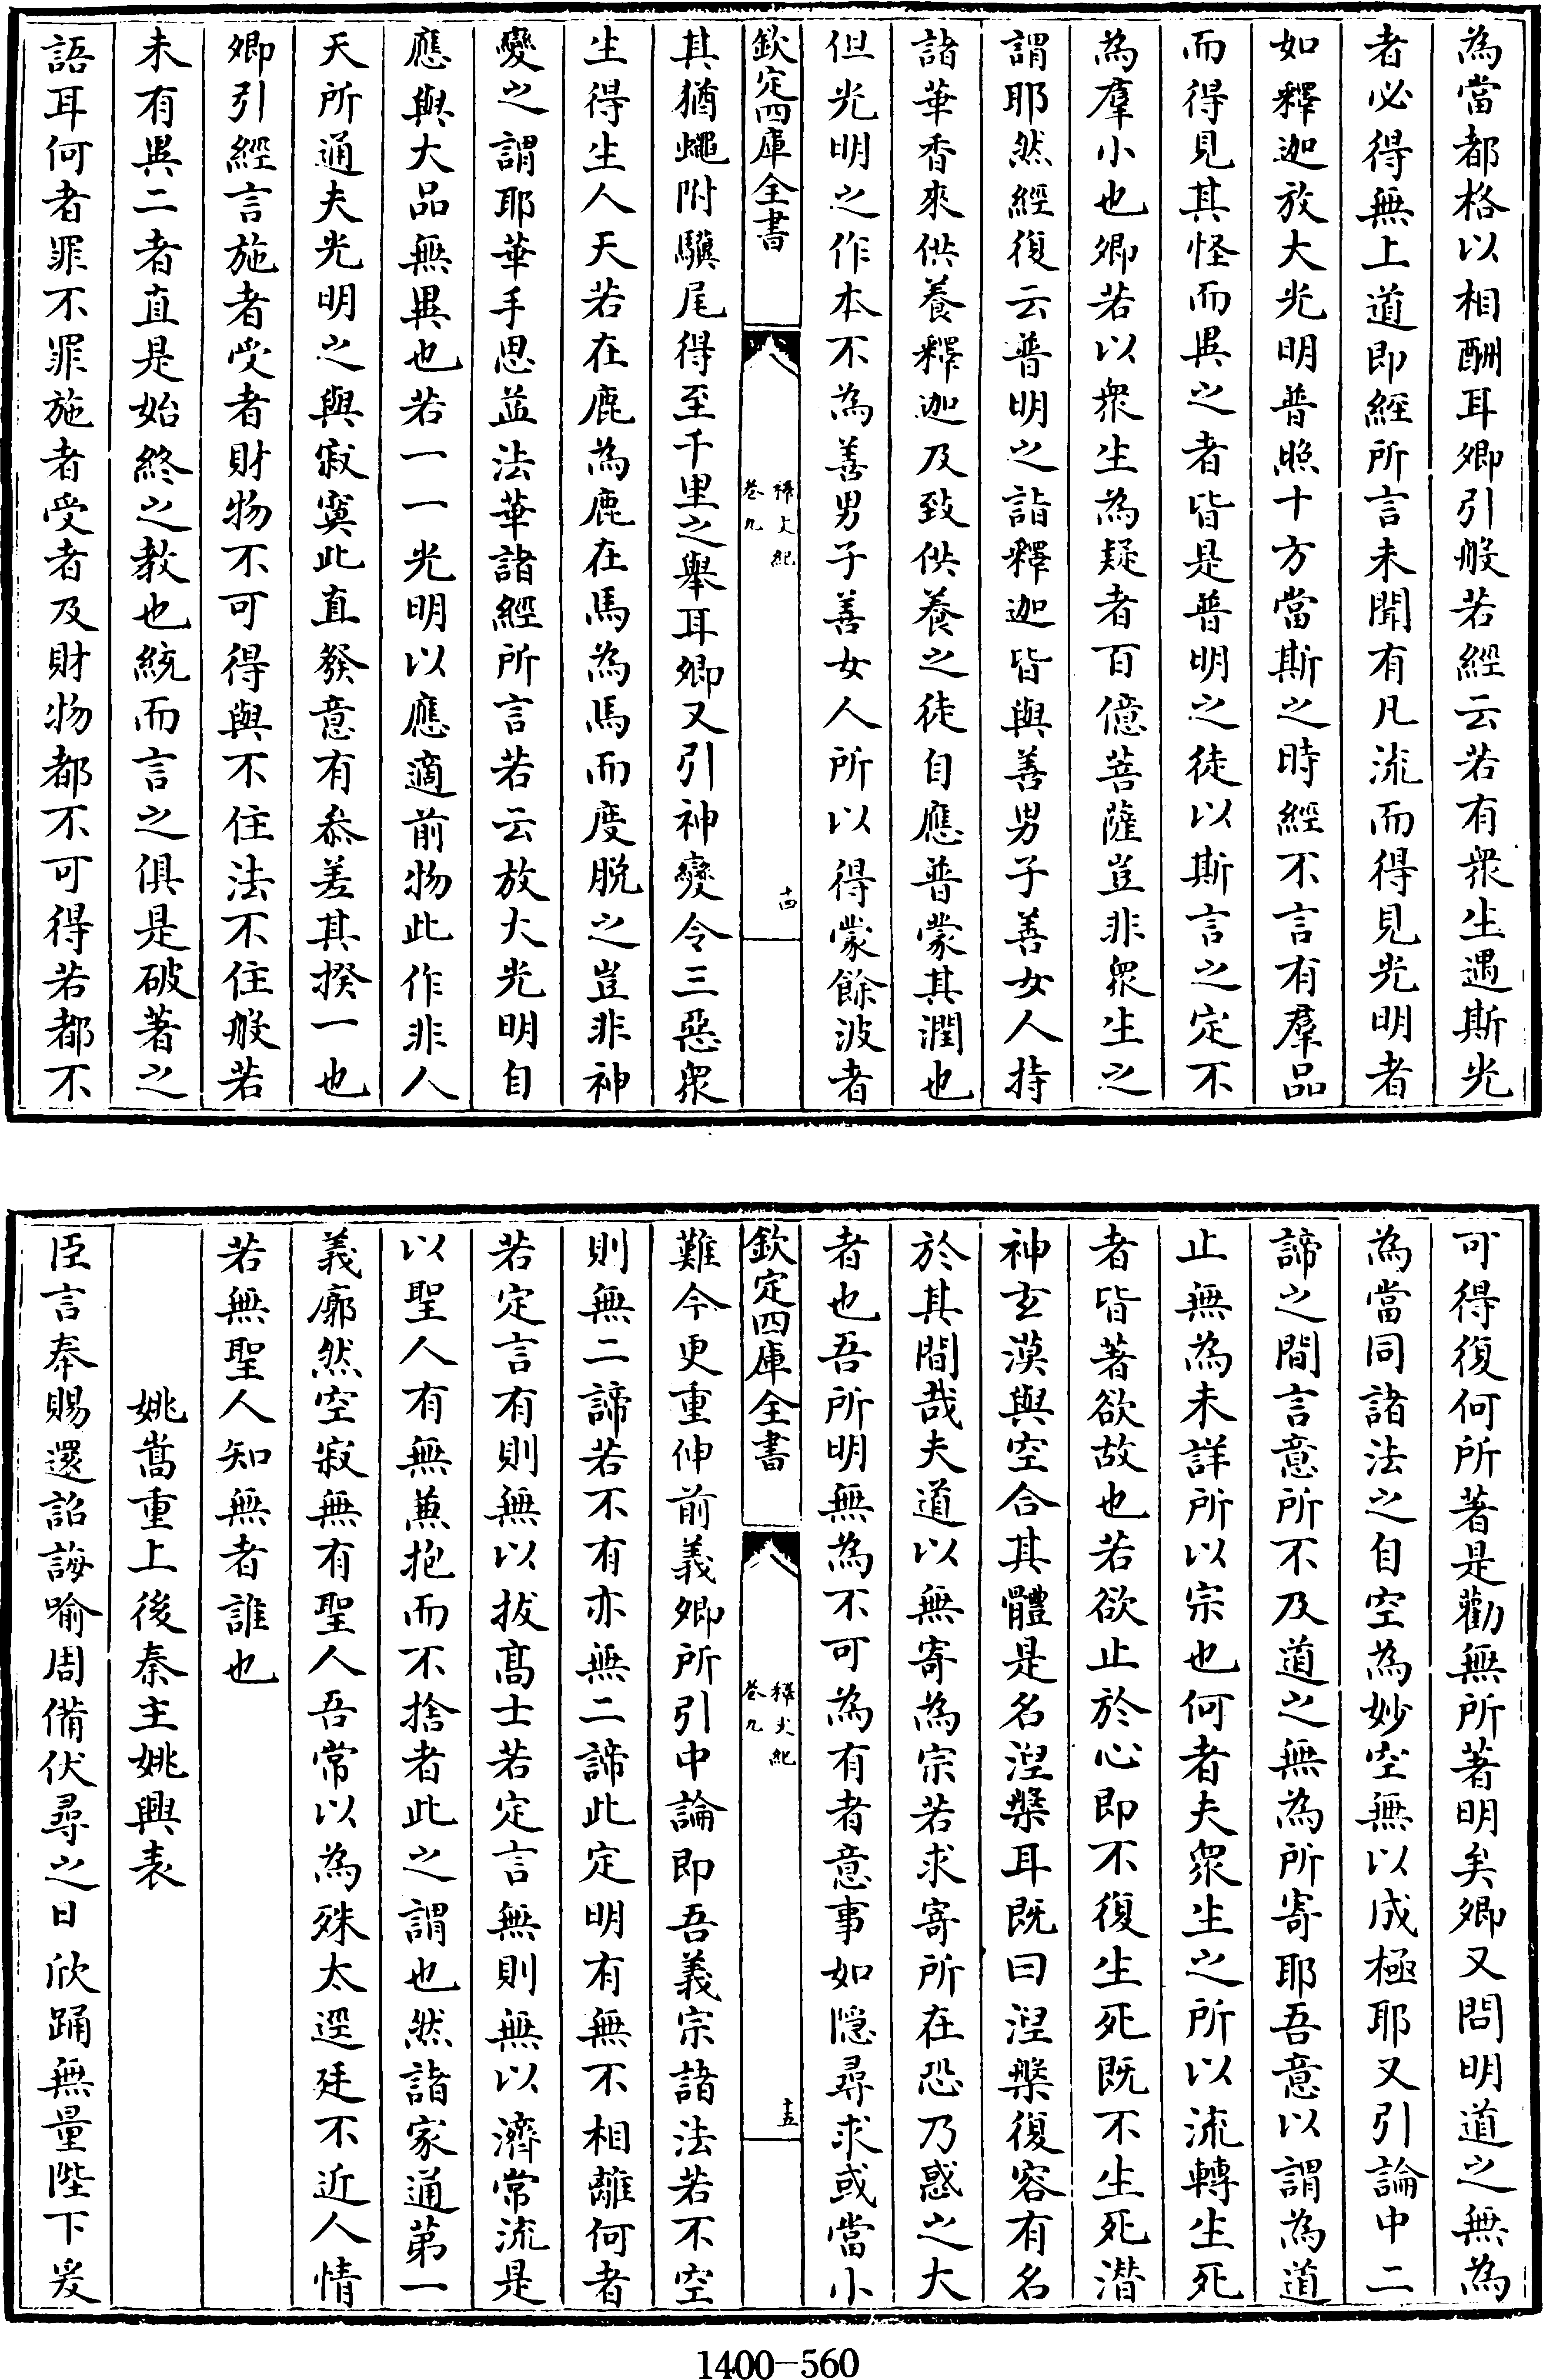 為當都格以相酬耳卿引般若經云若有衆生遇斯光
者必得無上道即經所言未聞有凡流而得見光明者
如釋迦放大光明普照十方當斯之時經不言有羣品
而得見其怪而異之者皆是普明之徒以斯言之定不
為羣小也卿若以衆生為疑者百億菩薩豈非衆生之
謂耶然經復云普明之詣釋迦皆與善男子善女人持
諸華香來供養釋迦及致供養之徒自應普蒙其潤也
但光明之作本不為善男子善女人所以得蒙餘波者
欽定四庫全書
釋文紀
卷九
十四
其猶蠅附驥尾得至千里之舉耳卿又引神變令三惡衆
生得生人天若在鹿為鹿在馬為馬而度脱之豈非神
變之謂耶華手思益法華諸經所言若云放大光明自
應與大品無異也若一一光明以應適前物此作非人
天所通夫光明之與寂寞此直發意有叅差其揆一也
卿引經言施者受者財物不可得與不住法不住般若
未有異二者直是始終之教也統而言之俱是破著之
語耳何者罪不罪施者受者及財物都不可得若都不
可得復何所著是勸無所著明矣卿又問明道之無為
為當同諸法之自空為妙空無以成極耶又引論中二
諦之間言意所不及道之無為所寄耶吾意以謂為道
止無為未詳所以宗也何者夫衆生之所以流轉生死
者皆著欲故也若欲止於心即不復生死既不生死潛
神玄漠與空合其體是名涅槃耳既曰涅槃復容有名
於其間哉夫道以無寄為宗若求寄所在恐乃惑之大
者也吾所明無為不可為有者意事如隱尋求或當小
欽定四庫全書
釋文紀
卷九
十五
難今更重伸前義卿所引中論即吾義宗諸法若不空
則無二諦若不有亦無二諦此定明有無不相離何者
若定言有則無以拔髙士若定言無則無以濟常流是
以聖人有無兼抱而不捨者此之謂也然諸家通第一
義廓然空寂無有聖人吾常以為殊太逕廷不近人情
若無聖人知無者誰也
姚嵩重上後秦主姚興表
臣言奉賜還詔誨喻周備伏尋之日欣踊無量陛下爰
1400-560